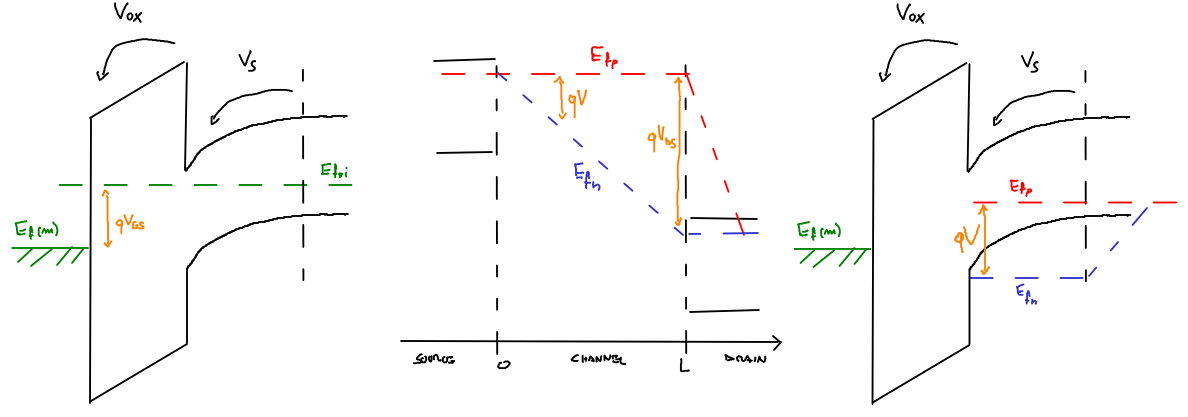 Vox
Vs
Efni
Ef(m)
qVGS
Efp
qV
qVDS
Efn
SOURCE
0
CHANNEL
L
DRAIN
Vox
Vs
Efp
Ef(m)
qV
Efn